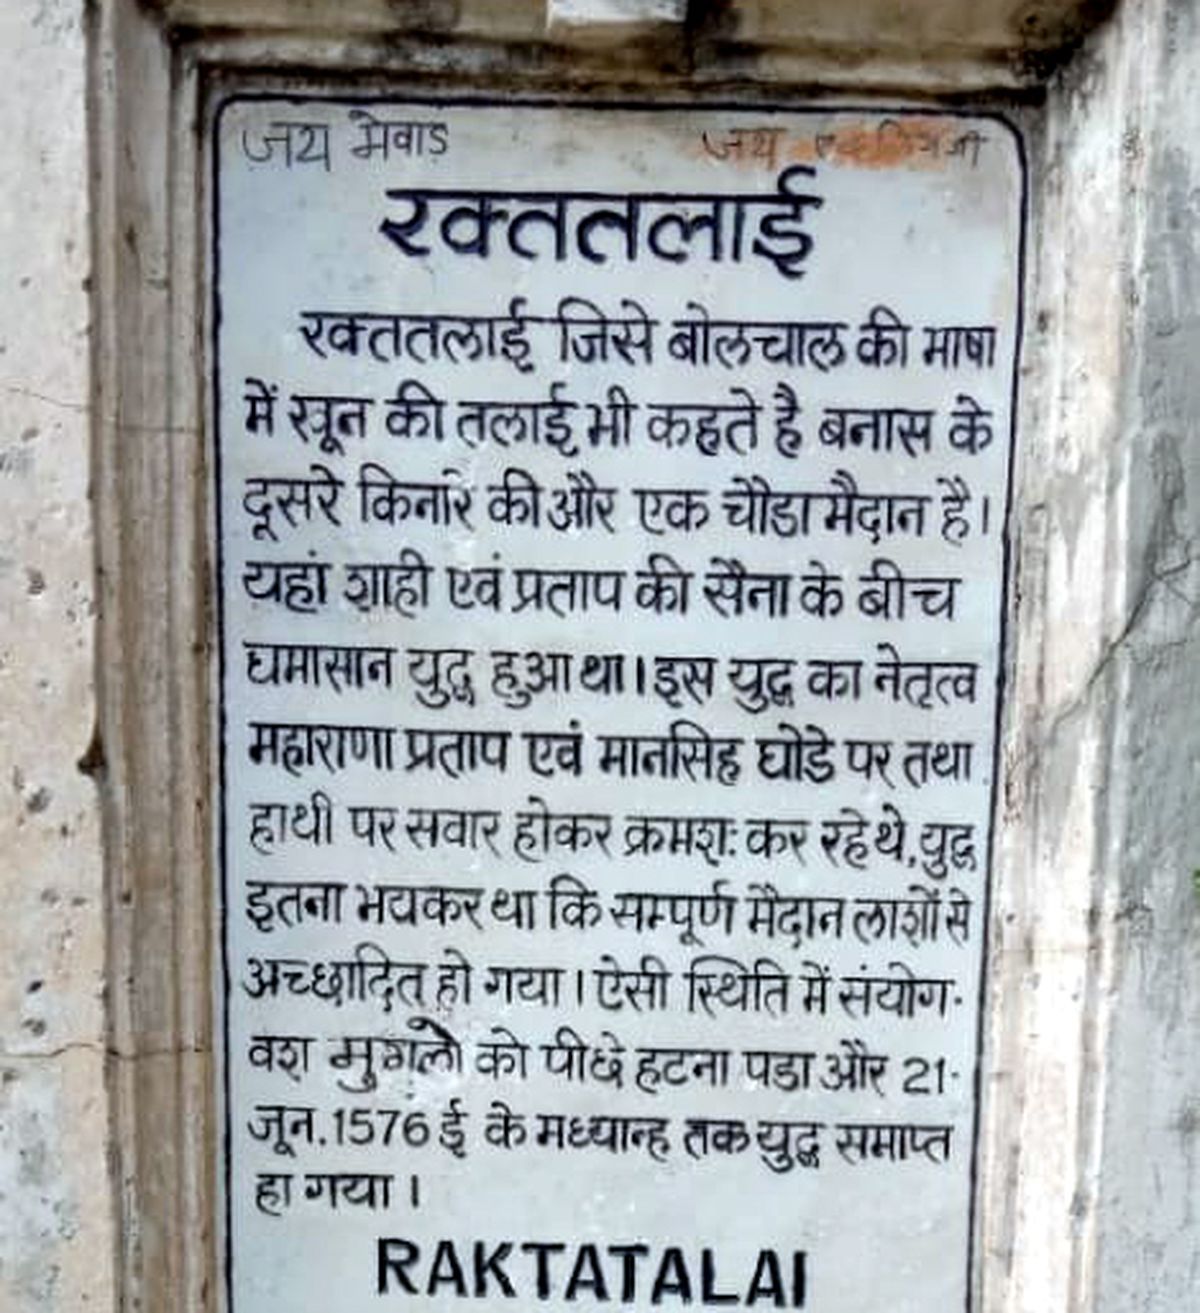 जय मेवाड़ जय
रक्ततलाई
रक्ततलाई जिसे बोलचाल की भाषा
में खून की तलाई भी कहते है बनास के
दूसरे किनारे की और एक चौडा मैदान है।
यहां शाही एवं प्रताप की सैना के बीच
घमासान युद्ध हुआ था। इस युद्ध का नेतृत्व
महाराणा प्रताप एवं मानसिह घोडे पर तथा
हाथी पर सवार होकर क्रमश: कर रहे थे, युद्ध
इतना भयकर था कि सम्पूर्ण मैदान लाशों से
अच्छादित् हो गया। ऐसी स्थिति में संयोग-
वश मुगलो को पीछे हटना पडा और 21-
जून.1576 ई के मध्यान्ह तक युद्ध समाप्त
हा गया।
RAKTATALAI